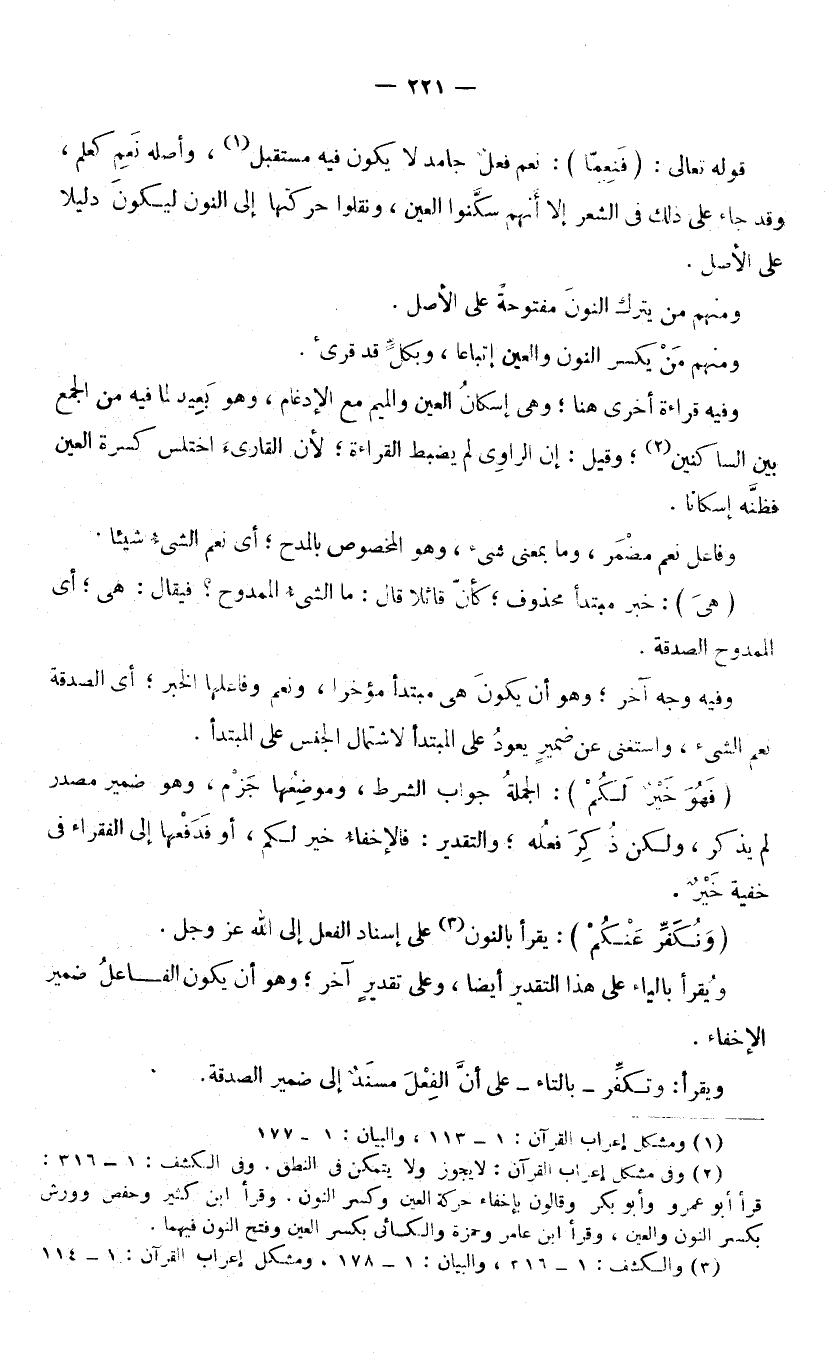 — ٢٢١ —
قوله تعالى : ( فَنِعِمَّا ) : نعم فعلٌ جامد لا يكون فيه مستقبل(١) ، وأصله نَعِم كعلم ،
وقد جاء على ذلك فى الشعر إلا أنهم سكَّنوا العين ، ونقلوا حركتها إلى النون ليكونَ دليلا
على الأصل .
ومنهم من يترك النونَ مفتوحةً على الأصل .
ومنهم مَنْ يكسر النون والعين إتباعا ، وبكلٍّ قد قرىء .
وفيه قراءة أخرى هنا ؛ وهى إسكانُ العين والميم مع الإدغام ، وهو بَعِيد لما فيه من الجمع
بين الساكنين(٢) ؛ وقيل : إن الراوِى لم يضبط القراءة ؛ لأن القارىءَ اختلس كسرة العين
فظنَّه إسكانا .
وفاعل نعم مضْمَر ، وما بمعنى شىء ، وهو المخصوص بالمدح ؛ أى نعم الشىء شيئا .
( هىَ ) : خبر مبتدأ محذوف ؛ كأنّ قائلا قال : ما الشىء الممدوح ؟ فيقال : هى ؛ أى
الممدوح الصدقة .
وفيه وجه آخر ؛ وهو أن يكونَ هى مبتدأ مؤخرا ، ونعم وفاعلها الخبر ؛ أى الصدقة
نعم الشىء ، واستغنى عن ضميرٍ يعودُ على المبتدأ لاشتمال الجنس على المبتدأ .
( فَهُوَ خَيْرٌ لَـكُمْ ) : الجملةُ جواب الشرط ، وموضِعُها جَزْم ، وهو ضمير مصدر
لم يذكر ، ولـكن ذُكِرَ فعلُه ؛ والتقدير : فالإخفاء خير لـكم ، أو فَدَفْعها إلى الفقراء فى
خفية خَيْرٌ .
( وَنُـكَفِّر عَنْـكُمْ ) : يقرأ بالنون(٣) على إسناد الفعل إلى الله عز وجل .
ويُقرأ بالياء على هذا التقدير أيضا ، وعلى تقديرٍ آخر ؛ وهو أن يكون الفـاعلُ ضمير
الإخفاء .
ويقرأ: وتـكفِّر ــ بالتاء ــ على أنَّ الفِعْلَ مسنَدٌ إلى ضمير الصدقة.
(١) ومشكل إعراب القرآن : ١ ــ ١١٣ ، والبيان : ١ ــ ١٧٧
(٢) وفى مشكل إعراب القرآن : لايجوز ولا يتمكن فى النطق . وفى الـكشف : ١ ــ ٣١٦ :
قرأ أبو عمرو وأبو بكر وقالون بإخفاء حركة العين وكسر النون . وقرأ ابن كثير وحفص وورش
بكسر النون والعين ، وقرأ ابن عامر وحمزة والـكسائى بكسر العين وفتح النون فيهما .
(٣) والـكشف : ١ ــ ٢١٦ ، والبيان : ١ ــ ١٧٨ ، ومشكل إعراب القرآن : ١ ــ ١١٤